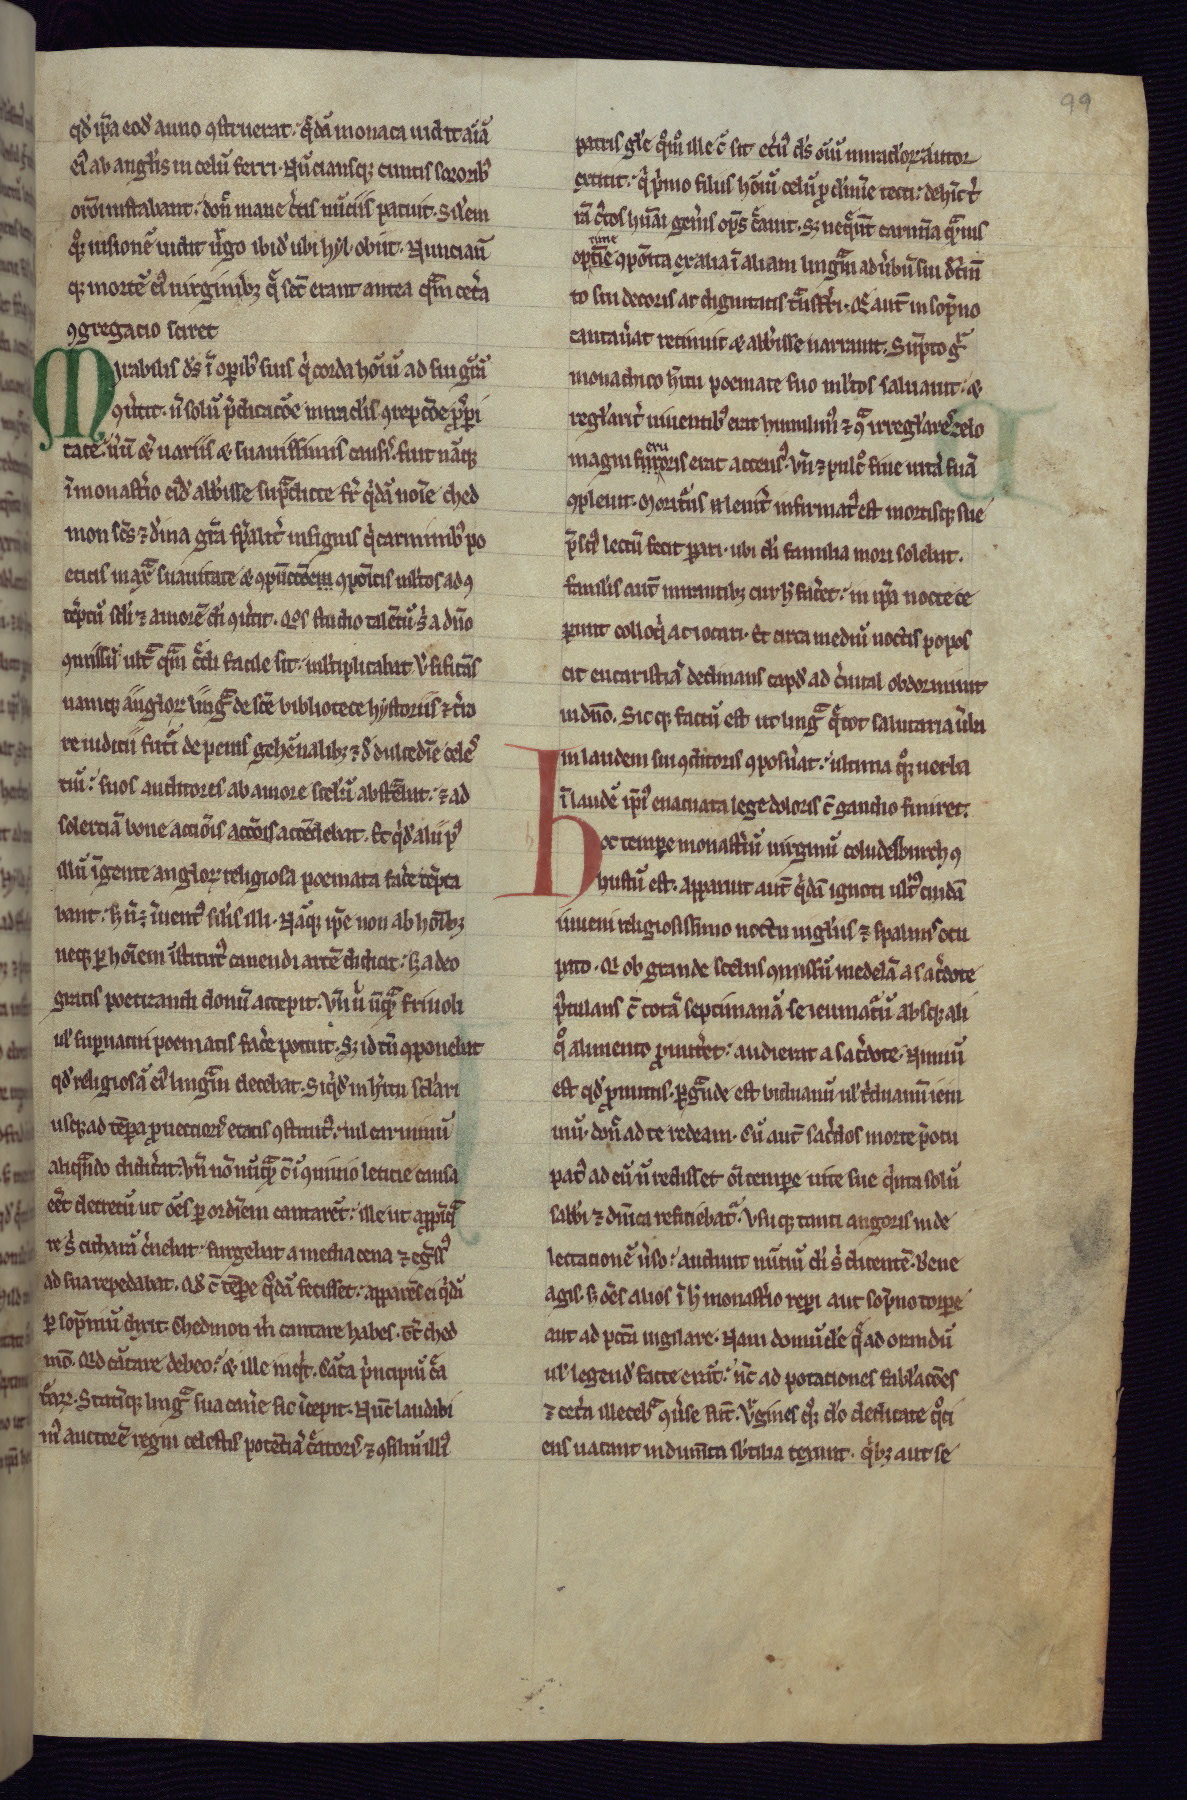 99
qd̓ ip̄a eod̓ anno ꝯstruerat. q̄dā monaca uidit aīā
ei᷒ ab anglis in celū ferri. Nūciansq; cunctis sororib᷒
orōi instabant. don̄ mane c̄tis nūciis patuit. Silem
q͛; uisionē uidit ūgo ibid̓ ubi hyl. obiit. Nunciaū
q; mortē ei᷒ uirginib; q̄ sec̄ erant antea q̄m cet̄a
ꝯgregacio sciret
Mirabilis ds̄ ī op̄ib᷒ suis q̄ corda hoīū ad suī gr̄ā
ꝯu̓tit. n̄ solū p̄dicacōe miraclis
tate. ūū & uariis & suauissimis causis. fuit nāq;
ī monast̄io eid̓ abbisse sup̄dicte fr̄ q̄dā noīe ched
mon sc̄s ⁊ diuina gr̄a sp̄alit̄ insignis q̄ carminib᷒ po
eticis maxī suauitate & ꝯpūctōem ꝯpōitis ml̓tos ad ꝯ
tēptū sc̄li ⁊ amorē di ꝯu̓tit. Q̓s studio talētū s̓ a dn̄o
ꝯmissū ult̄ q̄m c̄di facile sit. ml̓tiplicabat
namq; anglor̄ lingā de sc̄e bibliotece hystoriis ⁊ t̓ro
re iudicii fut̄i de penis gehēnalib; ⁊ d̓ dulcedīe celes
tiū. suos auditores ab amore scel̓ū abst̄ebat. ⁊ ad
solerciā bone acciōis accōis accēdebat. Et q̄d̓ alii p᷒
illū ī gente anglor̄ religiosa poemata fac̓e tēpta
bant. s; n̄; īuent᷒ sil̓is illi. Nāq; ip̄e non ab hoīb;
neq; p̱ hoīem īstitut᷒ canendi artē didicit. s; a deo
gratis poetizandi donū accepit. Vn̄ ū nūq̄ friuoli
ul̓ sup̱uacui poematis fac̓e potuit. S; id tn̄ ꝯponebat
qd̓ religiosā ei᷒ lingā decebat. Siqd̓ in h̓itu sc̄lari
usq; ad tēp̱a ꝓuectioris etatis ꝯstitut᷒. nil carminū
aliq̄ndo didic̓at. Vn̄ nō nūq̄ c̄ ī ꝯuiuio leticie causa
eēt decretū ut oēs p̱ ordinem cantarēt. ille ut app̱īq̄
re s̓ citharā c̓nebat. surgebat a media cena ⁊ eg̓ss᷒
ad sua repedabat. Qd̓ c̄ tēp̱e q̄dā fecisset. apparēs ei q̄dā
p̱ sop̄niū dixit. Chedmon m̄ cantare habes. Ac̄ ched
mō. Qd cātare debeo. & ille inq̄t. cāta p̄ncipiū c̄a
t̄are. Statiq; lingā sua can̓e sic īcepit. Nūc laudibi
m᷒ auctorē regni celestis potētiā c̄atoris ⁊ ꝯsiliū illi᷒
patris gl̓e q̄m ille c̄ sit et̓n᷒ ds̄ oīū miraclor̄ autor
extitit. q̄ p̄mo filiis hoīū celū ꝓ culmīe tecti. dehīc t̓
rā c̄tos hūāi gen̓is op̄s c̄auit. S; neq̄ūt carmīa q̄uis
optīe ꝯpōita ex alia ī aliam lingām ad u̓bū sui det̓m̄
to sui decoris ac dignitatis t̄nsferri. Q̓ aut̄ in sop̄no
cantau̓at retinuit & abb̓isse narrauit. Sūpto g̓
monachico h̓itu poemate suo ml̓tos saluauit. &
reglarit̄ uiuentib᷒ erat humilim᷒ ⁊ ꝯ̄ irreglares zelo
magni furoris erat accens᷒. Vn̄ ⁊ pulc̓ fine uitā suā
ꝯpleuit. Morit̓us uleuit̄ infirmat᷒ est mortisq; sue
p̄sci᷒ lectū fecit pari. ubi di familia mori solebat.
famulis aut̄ mirantib; cur h̓ fac̓et. in ip̄a nocte ce
p̱unt colloq̄ ac iocari. Et circa mediū noctis popos
cit eucaristiā declinans caput ad c̓uical obdormiuit
in dn̄o. Sic q; factū est ut lingā q̄ tot salutaria u̓ba
in laudem sui ꝯditoris ꝯposu̓at. ultima q͛; uerba
ī laudē ip̄i᷒ euacuata lege doloris c̄ gaudio finiret.
Hoc temp̱e monast̄iū uirginū coludesburch ꝯ
bustū est. Apparuit aut̄ q̄dā ignoti ult᷒ cuidā
iuueni religiosissimo noctu uigiliis ⁊ psalmis occu
pato. Q̓ ob grande scelus ꝯmissū medelā a sac̓dote
p̓tulans c̄ totā septimanā se ieiunatuū absq; ali
q͛ alimento ꝓmitt̓et. audierat a sac̓dote. Nimiū
est qd̓ ꝓmittis. p̱gāde est biduanū ul̓ t̓duanū ieiu
niū. don̄ ad te redeam. Cū aut̄ sac̓dos morte p̄occu
pat᷒ ad eū n̄ redisset oī temp̱e uite sue q̄nta solū
sabb̓i ⁊ dn̄ica reficiebat᷒. Vsuq; tanti angoris in de
lectacionē u̓so. audiuit nūciū di s̓ dicentē. Bene
agis. s; oēs alios ī h̓ monast̄io rep̱i aut sop̄no torp̱e
aut ad pctā uigilare. Nam domūcle q̄ ad orandū
ul̓ legend̓ facte erāt. nc̄ ad potaciones fabl̓acōes
⁊ cet̓a illeceb̄ ꝯu̓se sūt. V̓gines q͛; do dedicate q͛ci
ens uacant indumta sb̓tilia texunt. q̄b; aut se